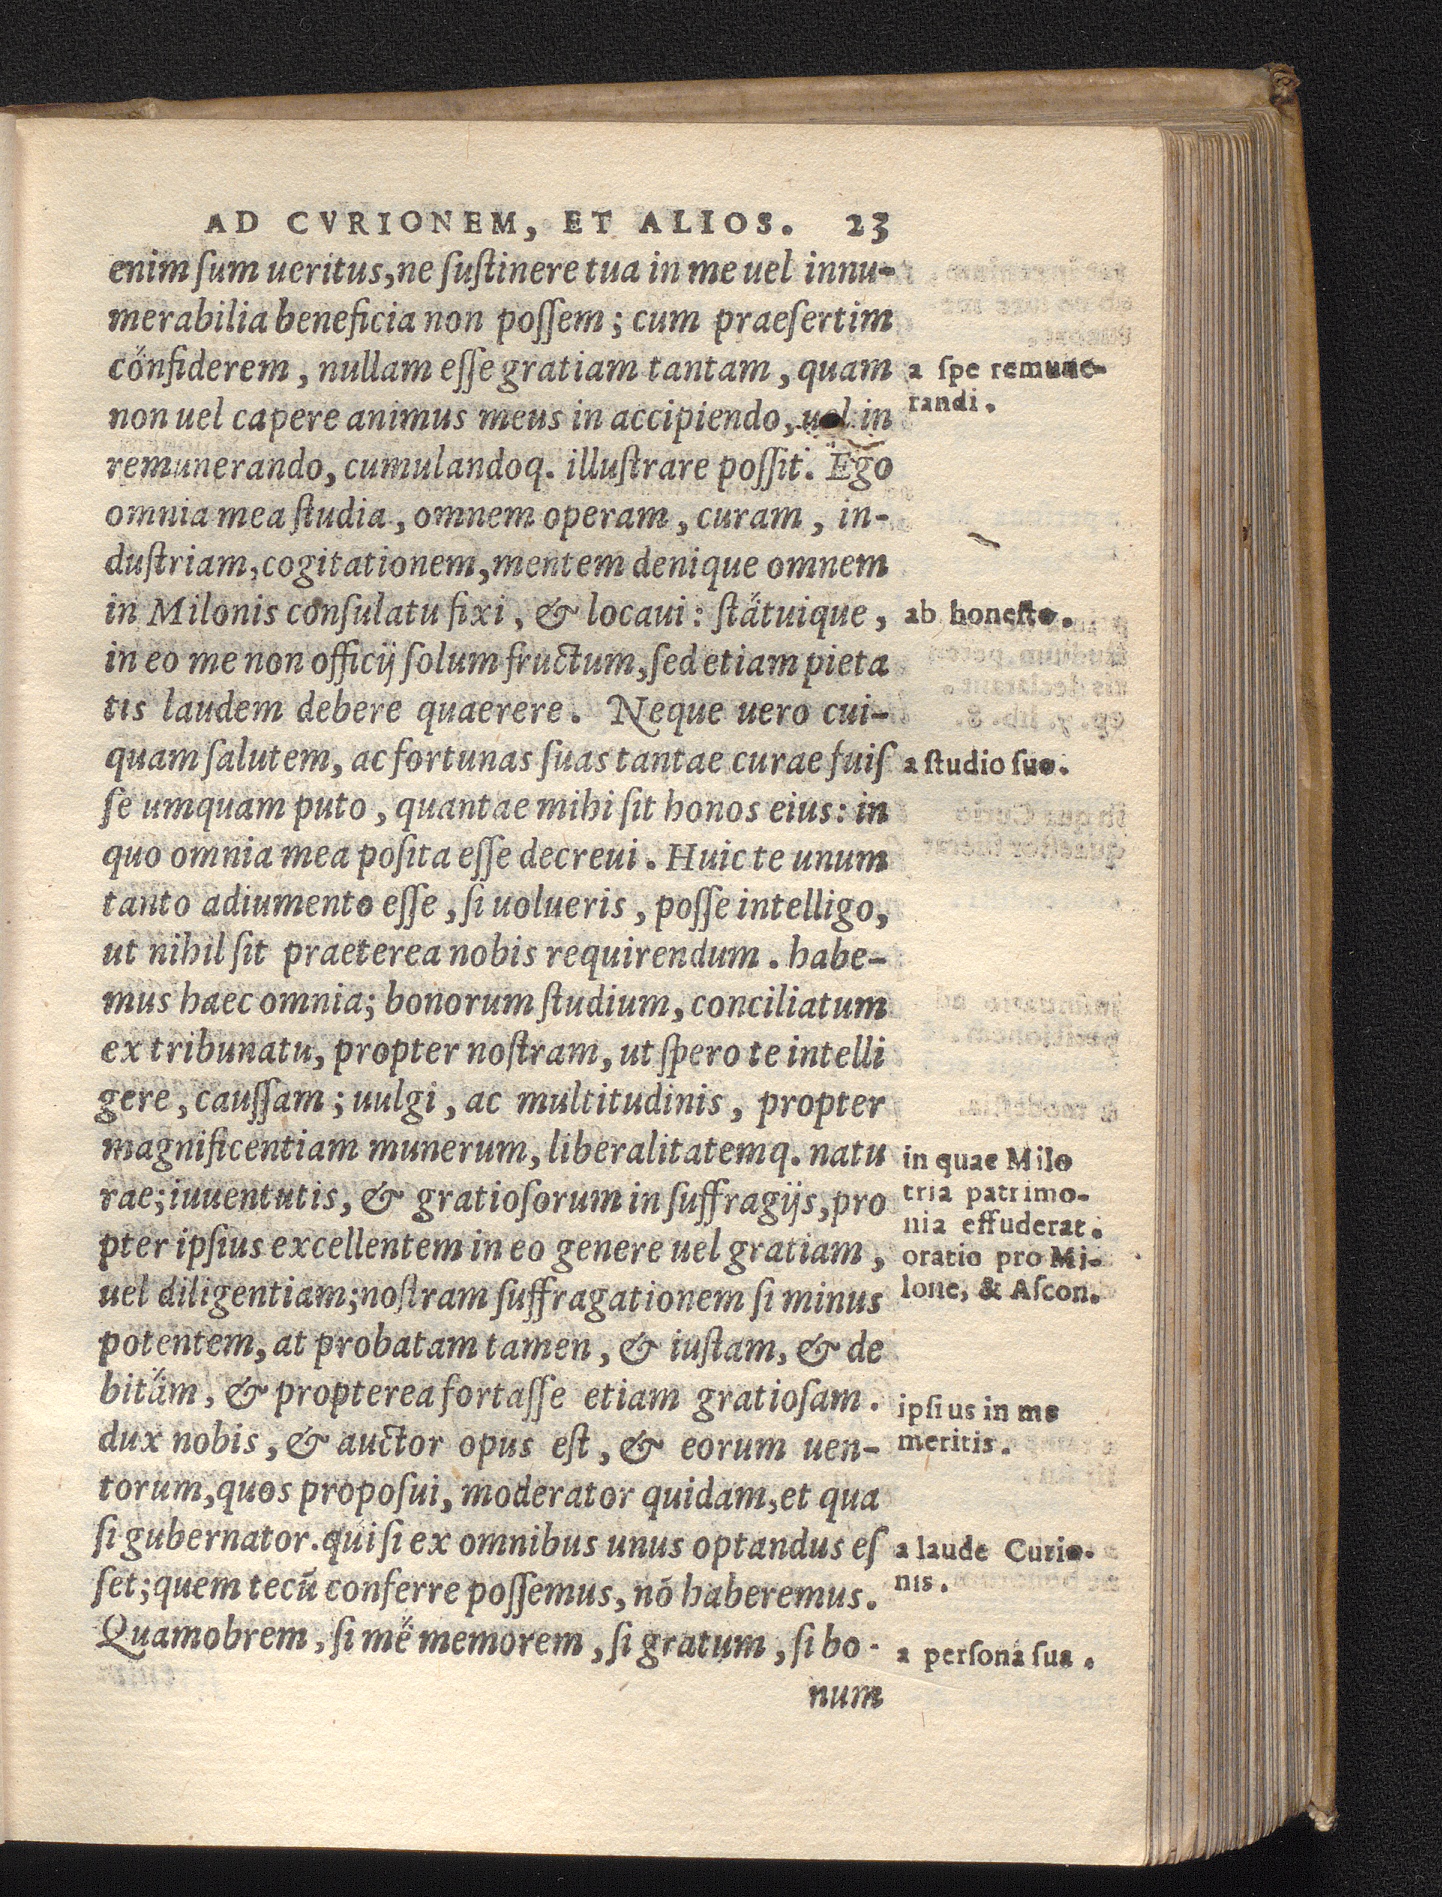 AD CVRIONEM, ET ALIOS. 23
enim ſum ueritus, ne ſuſtinere tua in me uel innu-
merabilia beneficia non poſſem; cum praeſertim
cőnfiderem, nullam eſſe gratiam tantam, quam
non uel capere animus meus in accipiendo, uel in
remunerando, cumulandoq. illuſtrare poſſit. Ego
omnia mea ſtudia, omnem operam, curam, in-
duſtriam, cogitationem, mentem denique omnem
in Milonis conſulatu fixi, & locaui: ſta̋tuique,
in eo me non officij ſolum fructum, ſed etiam pieta
tis laudem debere quaerere. Neque uero cui-
quam ſalutem, ac fortunas ſuas tantae curae fuiſ
ſe umquam puto, quantae mihi ſit honos eius: in
quo omnia mea poſita eſſe decreui. Huic te unum
tanto adiumento eſſe, ſi uolueris, poſſe intelligo,
ut nihil ſit praeterea nobis requirendum. habe-
mus haec omnia; bonorum ſtudium, conciliatum
ex tribunatu, propter noſtram, ut ſpero te intelli
gere, cauſſam; uulgi, ac multitudinis, propter
magnificentiam munerum, liberalitatemq. natu
rae; iuuentutis, & gratioſorum in ſuffragijs, pro
pter ipſius excellentem in eo genere uel gratiam,
uel diligentiam; noſtram ſuffragationem ſi minus
potentem, at probatam tamen, & iuſtam, & de
bita̋m, & propterea fortaſſe etiam gratioſam.
dux nobis, & auctor opus eſt, & eorum uen-
torum, quos propoſui, moderator quidam, et qua
ſi gubernator. qui ſi ex omnibus unus optandus eſ
ſet; quem tecū conferre poſſemus, nō haberemus.
Quamobrem, ſi me̋ memorem, ſi gratum, ſi bo-
num
a ſpe remune-
randi.
ab honeſto.
a ſtudio ſuo.
in quae Milo
tria patrimo-
nia effuderat.
oratio pro Mi-
lone, & Aſcon.
ipſius in me
meritis.
a laude Curio-
nis.
a perſona ſua.